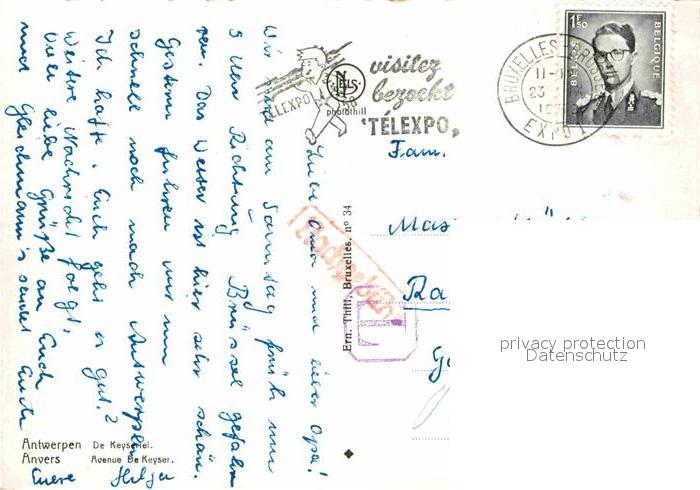 visitez
bezoekt
TÉLEXPO
TÉLEXPO 58
NELS
photothill
BRUXELLES BRUSSEL
23
EXPO 1
1F50
BELGIQUE
BELGIE
Fam.
Nachgebühr
T
Ern. Thill, Bruxelles. nº 34
privacy protection
Datenschutz
Liebe Oma und lieber Opa!
Wir sind am Sonntag früh um
5 Uhr Richtung Brüssel gefah
ren. Das Wetter ist hier sehr schön.
Gestern fuhren wir nun
schnell noch nach Antwerpen
Ich hoffe, Euch geht es gut?
Weitere Nachricht folgt,
Viele liebe Grüße an Euch
und Gleichmann's sendet Euch
Eure Helga
Antwerpen De Keyserlei.
Anvers Avenue De Keyser.